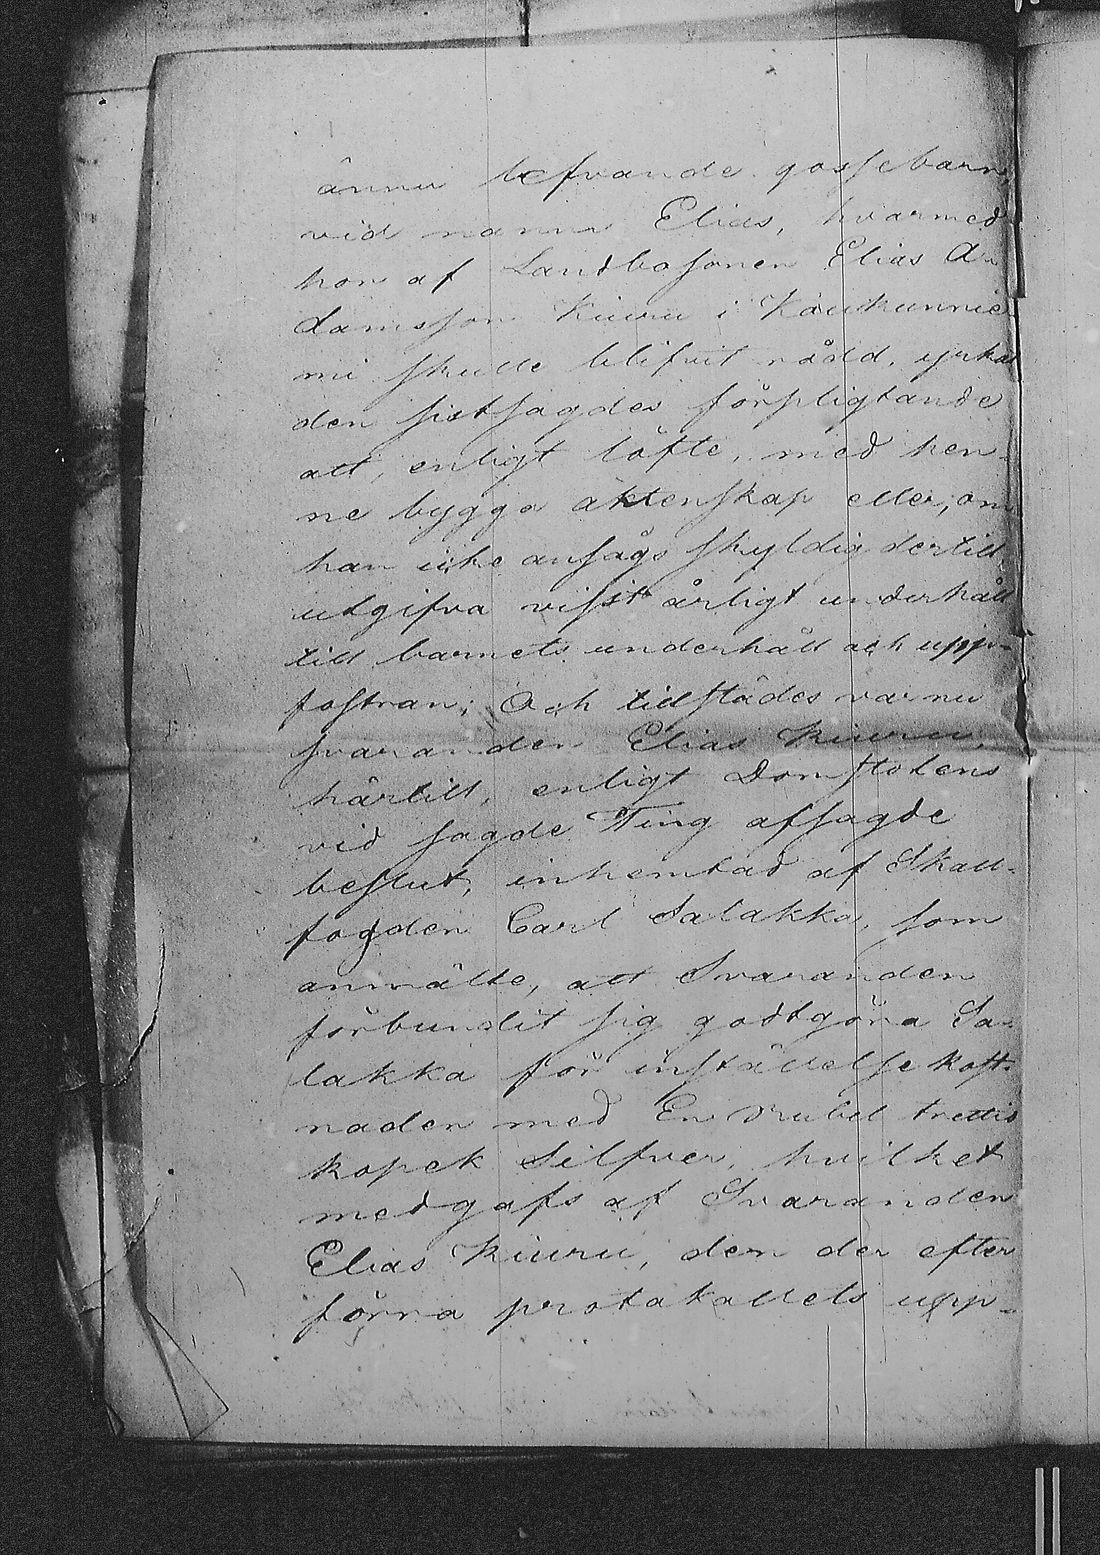 ännu lefvande gossebarn,
vid namn Elias, hvarmed
hon af Landbosonen Elias A-
damsson Kiuru i Kaukunnie
mi skulle blifvit rådd, yrkat
den sistsagdes förpligtande
att, enligt löfte, med hen-
ne bygga äktenskap eller, om
han icke ansågs skyldig dertill,
utgifva visst årligt underhåll
till barnets underhåll och upp-
fostran; Och tillstädes var nu
svaranden Elias Kiuru,
härtill, enligt Domstolens
vid sagde Ting afsagde
beslut, inhemtad af Skall-
fogden Carl Salakka, som
anmälte, att Svaranden
förbundit sig godtgöra Sa-
lakka för inställelse kost-
naden med En Rubel trettio
kopek Silfver, hvilket
medgafs af Svaranden
Elias Kiuru, den der efter
förra protokollets upp-